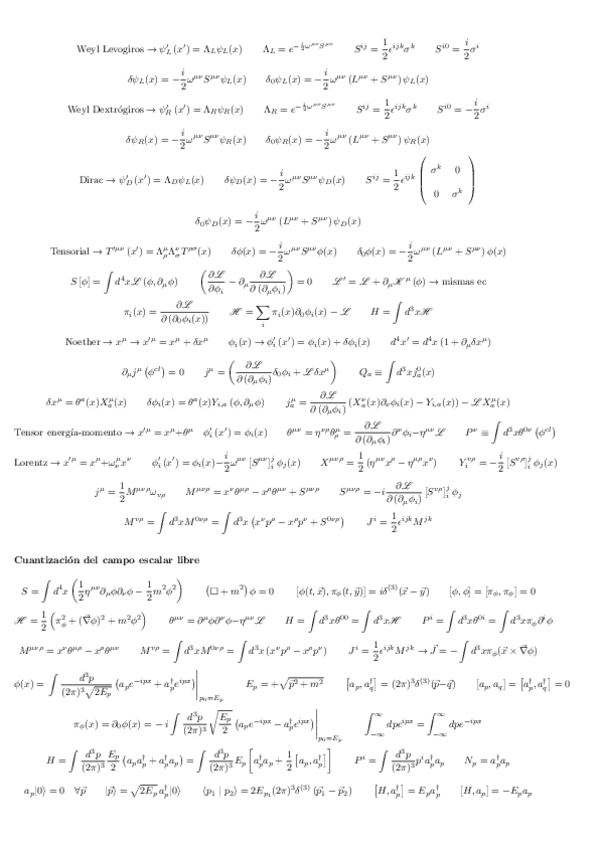 Weyl Levogiros → ψ′_L (x′) = Λ_L ψ_L(x)   Λ_L = e^{−(i/2)ω^{μν}S^{μν}}   S^{ij} = (1/2)ε^{ijk}σ^k   S^{i0} = (i/2)σ^i
δψ_L(x) = −(i/2)ω^{μν}S^{μν}ψ_L(x)   δ_0ψ_L(x) = −(i/2)ω^{μν}(L^{μν} + S^{μν})ψ_L(x)
Weyl Dextrógiros → ψ′_R (x′) = Λ_R ψ_R(x)   Λ_R = e^{−(i/2)ω^{μν}S^{μν}}   S^{ij} = (1/2)ε^{ijk}σ^k   S^{i0} = −(i/2)σ^i
δψ_R(x) = −(i/2)ω^{μν}S^{μν}ψ_R(x)   δ_0ψ_R(x) = −(i/2)ω^{μν}(L^{μν} + S^{μν})ψ_R(x)
Dirac → ψ′_D (x′) = Λ_D ψ_L(x)   δψ_D(x) = −(i/2)ω^{μν}S^{μν}ψ_D(x)   S^{ij} = (1/2)ε^{ijk} ( σ^k 0 ; 0 σ^k )
δ_0ψ_D(x) = −(i/2)ω^{μν}(L^{μν} + S^{μν})ψ_D(x)
Tensorial → T′^{μν}(x′) = Λ^μ_ρ Λ^ν_σ T^{ρσ}(x)   δφ(x) = −(i/2)ω^{μν}S^{μν}φ(x)   δ_0φ(x) = −(i/2)ω^{μν}(L^{μν} + S^{μν})φ(x)
S[φ] = ∫d^4xℒ(φ, ∂_μφ)   (∂ℒ/∂φ_i − ∂_μ ∂ℒ/∂(∂_μφ_i)) = 0   ℒ′ = ℒ + ∂_μ𝒦^μ(φ) → mismas ec
π_i(x) = ∂ℒ/∂(∂_0φ_i(x))   ℋ = ∑_i π_i(x)∂_0φ_i(x) − ℒ   H = ∫d^3xℋ
Noether → x^μ → x′^μ = x^μ + δx^μ   φ_i(x) → φ′_i(x′) = φ_i(x) + δφ_i(x)   d^4x′ = d^4x(1 + ∂_μδx^μ)
∂_μj^μ(φ^{cl}) = 0   j^μ = (∂ℒ/∂(∂_μφ_i) δ_0φ_i + ℒδx^μ)   Q_a ≡ ∫d^3xj^0_a(x)
δx^μ = θ^a(x)X^μ_a(x)   δφ_i(x) = θ^a(x)Y_{i,a}(φ, ∂_μφ)   j^μ_a = ∂ℒ/∂(∂_μφ_i) (X^ν_a(x)∂_νφ_i(x) − Y_{i,a}(x)) − ℒX^μ_a(x)
Tensor energía-momento → x′^μ = x^μ+θ^μ   φ′_i(x′) = φ_i(x)   θ^{μν} = η^{νρ}θ^μ_ρ = ∂ℒ/∂(∂_μφ_i) ∂^νφ_i−η^{μν}ℒ   P^ν ≡ ∫d^3xθ^{0ν}(φ^{cl})
Lorentz → x′^μ = x^μ+ω^μ_νx^ν   φ′_i(x′) = φ_i(x)−(i/2)ω^{μν}[S^{μν}]^j_i φ_j(x)   X^{μνρ} = (1/2)(η^{μν}x^ρ − η^{μρ}x^ν)   Y^{νρ}_i = −(i/2)[S^{νρ}]^j_i φ_j(x)
j^μ = (1/2)M^{μνρ}ω_{νρ}   M^{μνρ} = x^νθ^{μρ} − x^ρθ^{μν} + S^{μνρ}   S^{μνρ} = −i ∂ℒ/∂(∂_μφ_i) [S^{νρ}]^j_i φ_j
M^{νρ} = ∫d^3xM^{0νρ} = ∫d^3x(x^νp^ρ − x^ρp^ν + S^{0νρ})   J^i = (1/2)ε^{ijk}M^{jk}
Cuantización del campo escalar libre
S = ∫d^4x((1/2)η^{μν}∂_μφ∂_νφ − (1/2)m^2φ^2)   (□ + m^2)φ = 0   [φ(t, x⃗), π_φ(t, y⃗)] = iδ^{(3)}(x⃗ − y⃗)   [φ, φ] = [π_φ, π_φ] = 0
ℋ = (1/2)(π^2_φ + (∇⃗φ)^2 + m^2φ^2)   θ^{μν} = ∂^μφ∂^νφ−η^{μν}ℒ   H = ∫d^3xθ^{00} = ∫d^3xℋ   P^i = ∫d^3xθ^{0i} = ∫d^3xπ_φ∂^iφ
M^{μνρ} = x^νθ^{μρ} − x^ρθ^{μν}   M^{νρ} = ∫d^3xM^{0νρ} = ∫d^3x(x^νp^ρ − x^ρp^ν)   J^i = (1/2)ε^{ijk}M^{jk} → J⃗ = −∫d^3xπ_φ(x⃗ × ∇⃗φ)
φ(x) = ∫ d^3p/((2π)^3√(2E_p)) (a_pe^{−ipx} + a^†_pe^{ipx})|_{p_0=E_p}   E_p = +√(p⃗^2 + m^2)   [a_p, a^†_q] = (2π)^3δ^{(3)}(p⃗−q⃗)   [a_p, a_q] = [a^†_p, a^†_q] = 0
π_φ(x) = ∂_0φ(x) = −i∫ d^3p/(2π)^3 √(E_p/2) (a_pe^{−ipx} − a^†_pe^{ipx})|_{p_0=E_p}   ∫^∞_{−∞} dpe^{ipx} = ∫^∞_{−∞} dpe^{−ipx}
H = ∫ d^3p/(2π)^3 E_p/2 (a_pa^†_p + a^†_pa_p) = ∫ d^3p/(2π)^3 E_p[a^†_pa_p + (1/2)[a_p, a^†_p]]   P^i = ∫ d^3p/(2π)^3 p^ia^†_pa_p   N_p = a^†_pa_p
a_p|0⟩ = 0   ∀p⃗   |p⃗⟩ = √(2E_p) a^†_p|0⟩   ⟨p_1 | p_2⟩ = 2E_{p_1}(2π)^3δ^{(3)}(p⃗_1 − p⃗_2)   [H, a^†_p] = E_pa^†_p   [H, a_p] = −E_pa_p